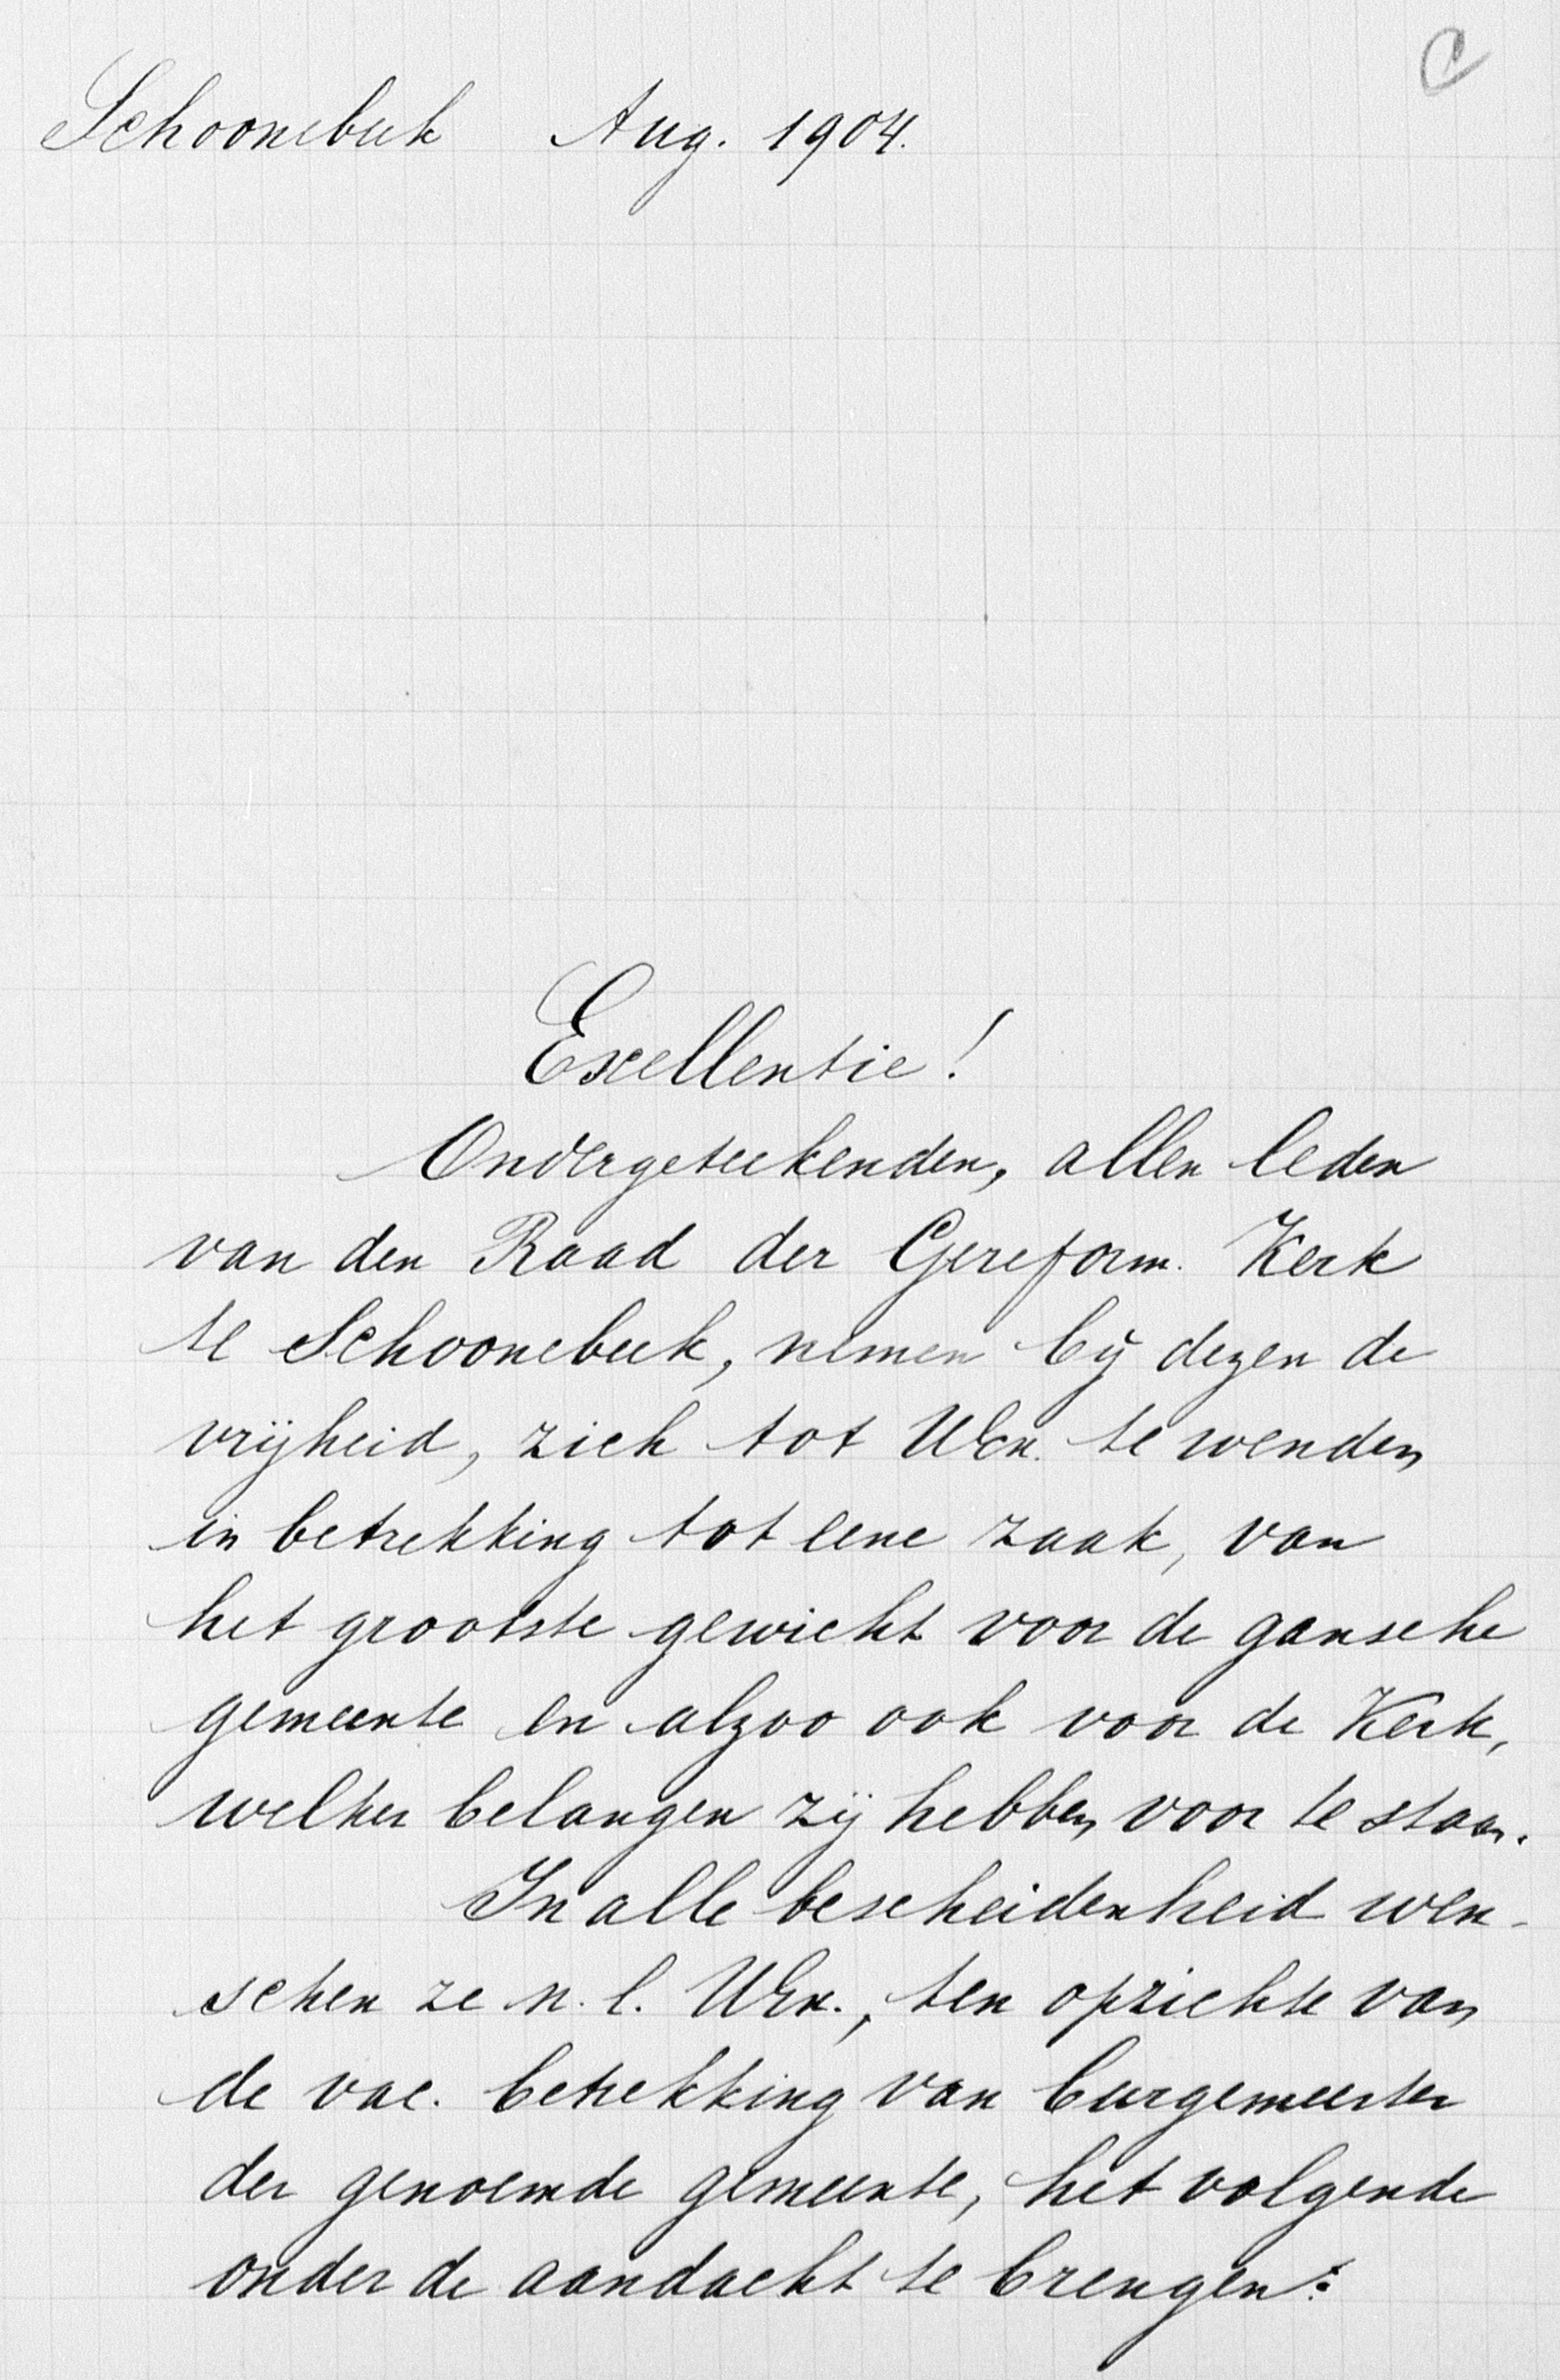 Schoonebeek Aug. 1904.
Excellentie!
Ondergeteekenden, allen leden
van den Raad der Gereform. Kerk
te Schoonebeek, nemen bij dezen de
vrijheid, zich tot UEx. te wenden
in betrekking tot eene zaak, van
het grootste gewicht voor de gansche
gemeente en alzoo ook voor de Kerk,
welker belangen zij hebben voor te staan.
In alle bescheidenheid wen-
schen ze n.l. UEx., ten opzichte van
de vac. betrekking van burgemeester
der genoemde gemeente, het volgende
onder de aandacht te brengen: